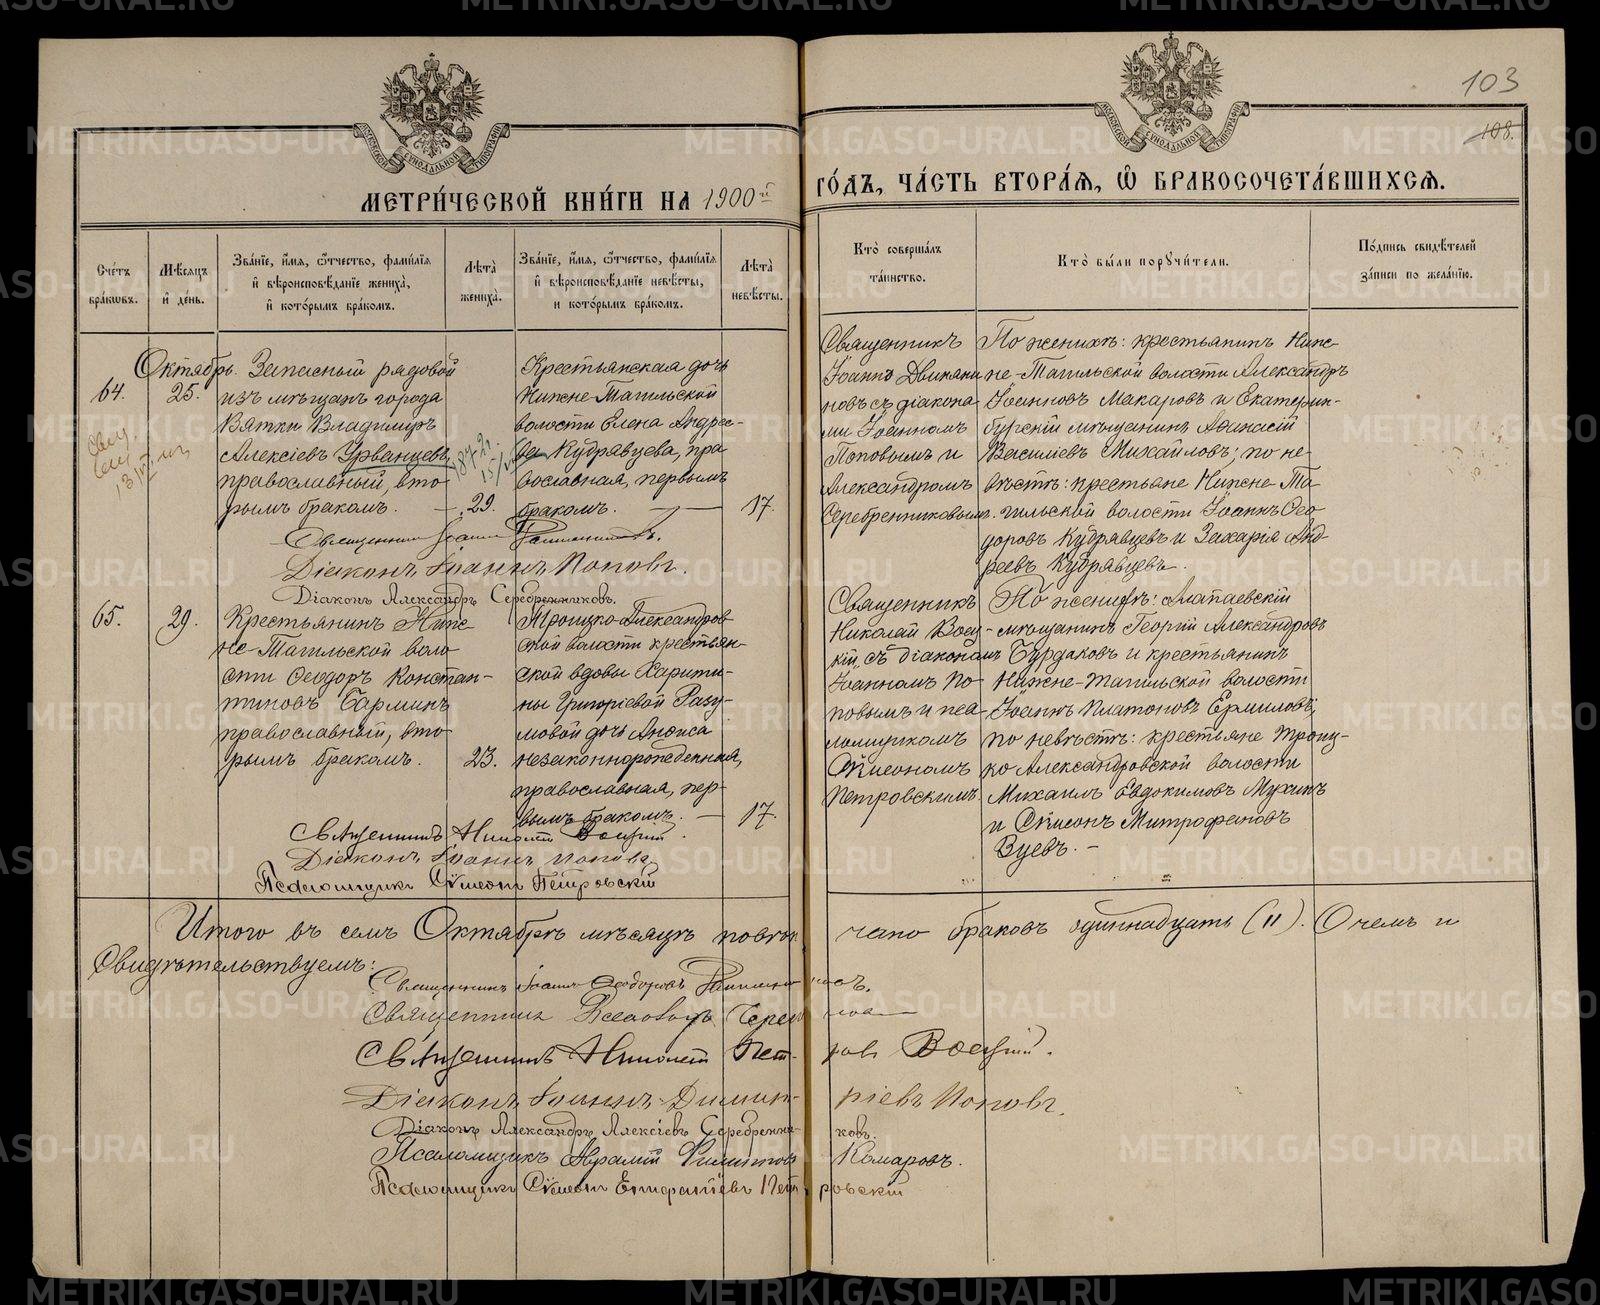 103
108.
МЕТРИ́ЧЕСКОЙ КНИ́ГИ НА 1900й
ГО́ДЪ, ЧА́СТЬ ВТОРА́Я, Ѽ БРАКОСОЧЕТА́ВШИХСЯ.
Сче́тъ бра́кѡвъ.
Мѣ́сяцъ и҆ де́нь.
Зва́нїе, и҆́мя, ѻ҆́тчество, фами́лїя
и҆ вѣроисповѣ́данїе жениха̀,
и҆ кото́рымъ бра́комъ.
Лѣ́та жениха̀.
Зва́нїе, и҆́мя, ѻ҆́тчество, фами́лїя
и҆ вѣроисповѣ́данїе невѣ́сты,
и҆ кото́рымъ бра́комъ.
Лѣ́та невѣ́сты.
Кто̀ соверша́лъ
та́инство.
Кто̀ бы́ли поручи́тели.
По́дпись свидѣ́телей
за́писи по жела́нїю.
64.
Октябрь.
25.
Запасный рядовой
изъ мѣщанъ города
Вятки Владимиръ
Алексіевъ Урванцевъ,
православный, вто
рымъ бракомъ. — 29.
Крестьянская дочь
Нижне-Тагильской
волости Елена Андрее-
ва Кудрявцева, пра
вославная, первымъ
бракомъ. — 17.
Священникъ
Іоаннъ
новъ съ діакона
ми Іоанномъ
Поповымъ и
Александромъ
Серебренниковымъ.
По женихѣ: крестьянинъ Ниж-
не-Тагильской волости Александръ
Іоанновъ Макаровъ и Екатерин-
бургскій мѣщанинъ Аѳанасій
Василіевъ Михайловъ; по не-
вѣстѣ: крестьяне Нижне-Та
гильской волости Іоаннъ Ѳео
доровъ Кудрявцевъ и Захарія Анд-
реевъ Кудрявцевъ.
Священникъ Іоаннъ
Діаконъ Іоаннъ Поповъ.
Діаконъ Александръ Серебренниковъ.
65.
29.
Крестьянинъ Ниж
не-Тагильской воло
сти Ѳеодоръ Констан-
тиновъ Барминъ
православный, вто
рымъ бракомъ. 23.
Троицко-Александров
ской волости крестьян-
ской вдовы Харити-
ны Григоріевой Разу-
мовой дочь Анѳиса
незаконнорожденная,
православная, пер-
вымъ бракомъ. — 17.
Священникъ
Николай Воец-
кій, съ діакономъ
Іоанномъ По
повымъ и пса
ломщикомъ
Сѵмеономъ
Петровскимъ.
По женихѣ: Алапаевскій
мѣщанинъ Георгій Александровъ
Бурдаковъ и крестьянинъ
Нижне-Тагильской волости
Іоаннъ Платоновъ Ермиловъ;
по невѣстѣ: крестьяне Троиц-
ко Александровской волости
Михаилъ Евдокимовъ Мухинъ
и Сѵмеонъ Митрофановъ
Зуевъ. —
Священникъ Николай Воецкій.
Діаконъ Іоаннъ Поповъ
Псаломщикъ Сѵмеонъ Петровскій
Итого въ семъ Октябрѣ мѣсяцѣ повѣнчано браковъ одиннадцать (11). О чемъ и
Свидѣтельствуемъ:
Священникъ Іоаннъ Ѳеодоровъ
Священникъ
Священникъ Николай Петровъ Воецкій.
Діаконъ Іоаннъ Димитріевъ Поповъ.
Діаконъ Александръ Алексіевъ Серебренниковъ.
Псаломщикъ Аврамій Филиповъ Комаровъ.
Псаломщикъ Сѵмеонъ Епифаніевъ Петровскій
METRIKI.GASO-URAL.RU